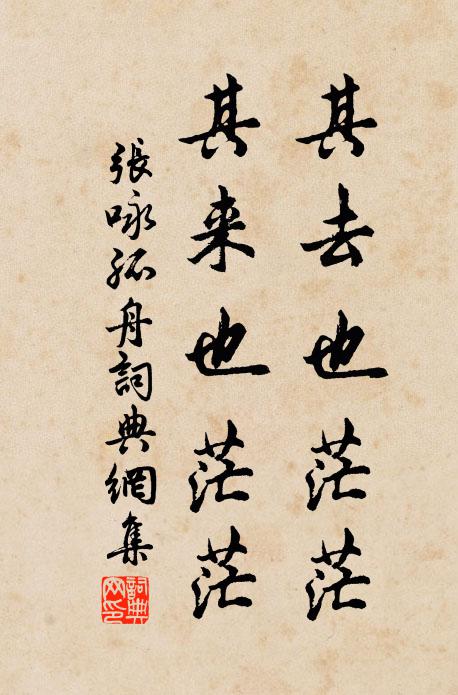 其去也茫茫
其来也茫茫
張咏孤舟詞典網集
詞典網印